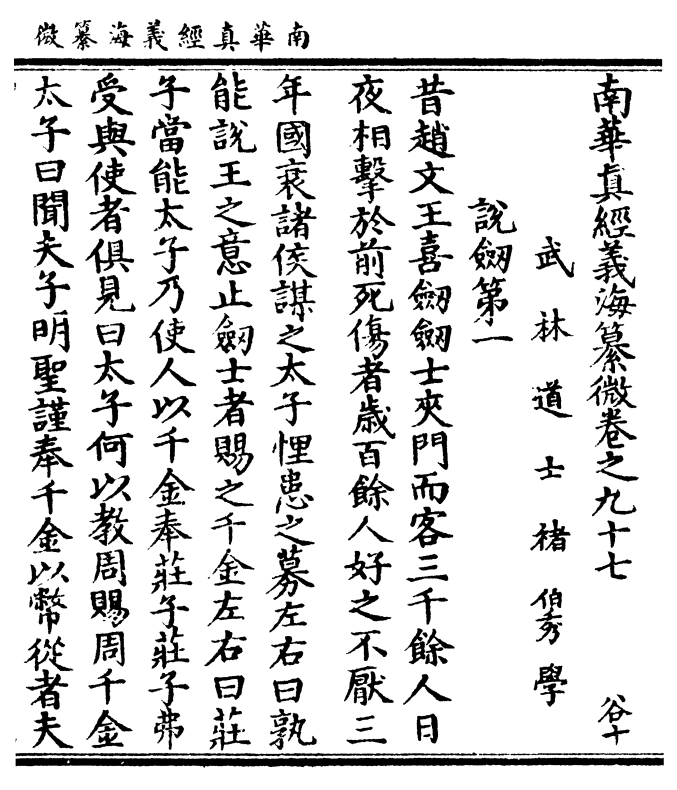 南華真經義海纂微
南華真經義海纂微卷之九十七
谷十
武林道士褚伯秀學
說劒第一
昔趙文王喜劒劒士夾門而客三千餘人日
夜相擊於前死傷者歲百餘人好之不厭三
年國衰諸侯謀之太子悝患之募左右曰孰
能說王之意止劒士者賜之千金左右曰莊
子當能太子乃使人以千金奉莊子莊子弗
受與使者俱見曰太子何以教周賜周千金
太子曰聞夫子明聖謹奉千金以幣從者夫